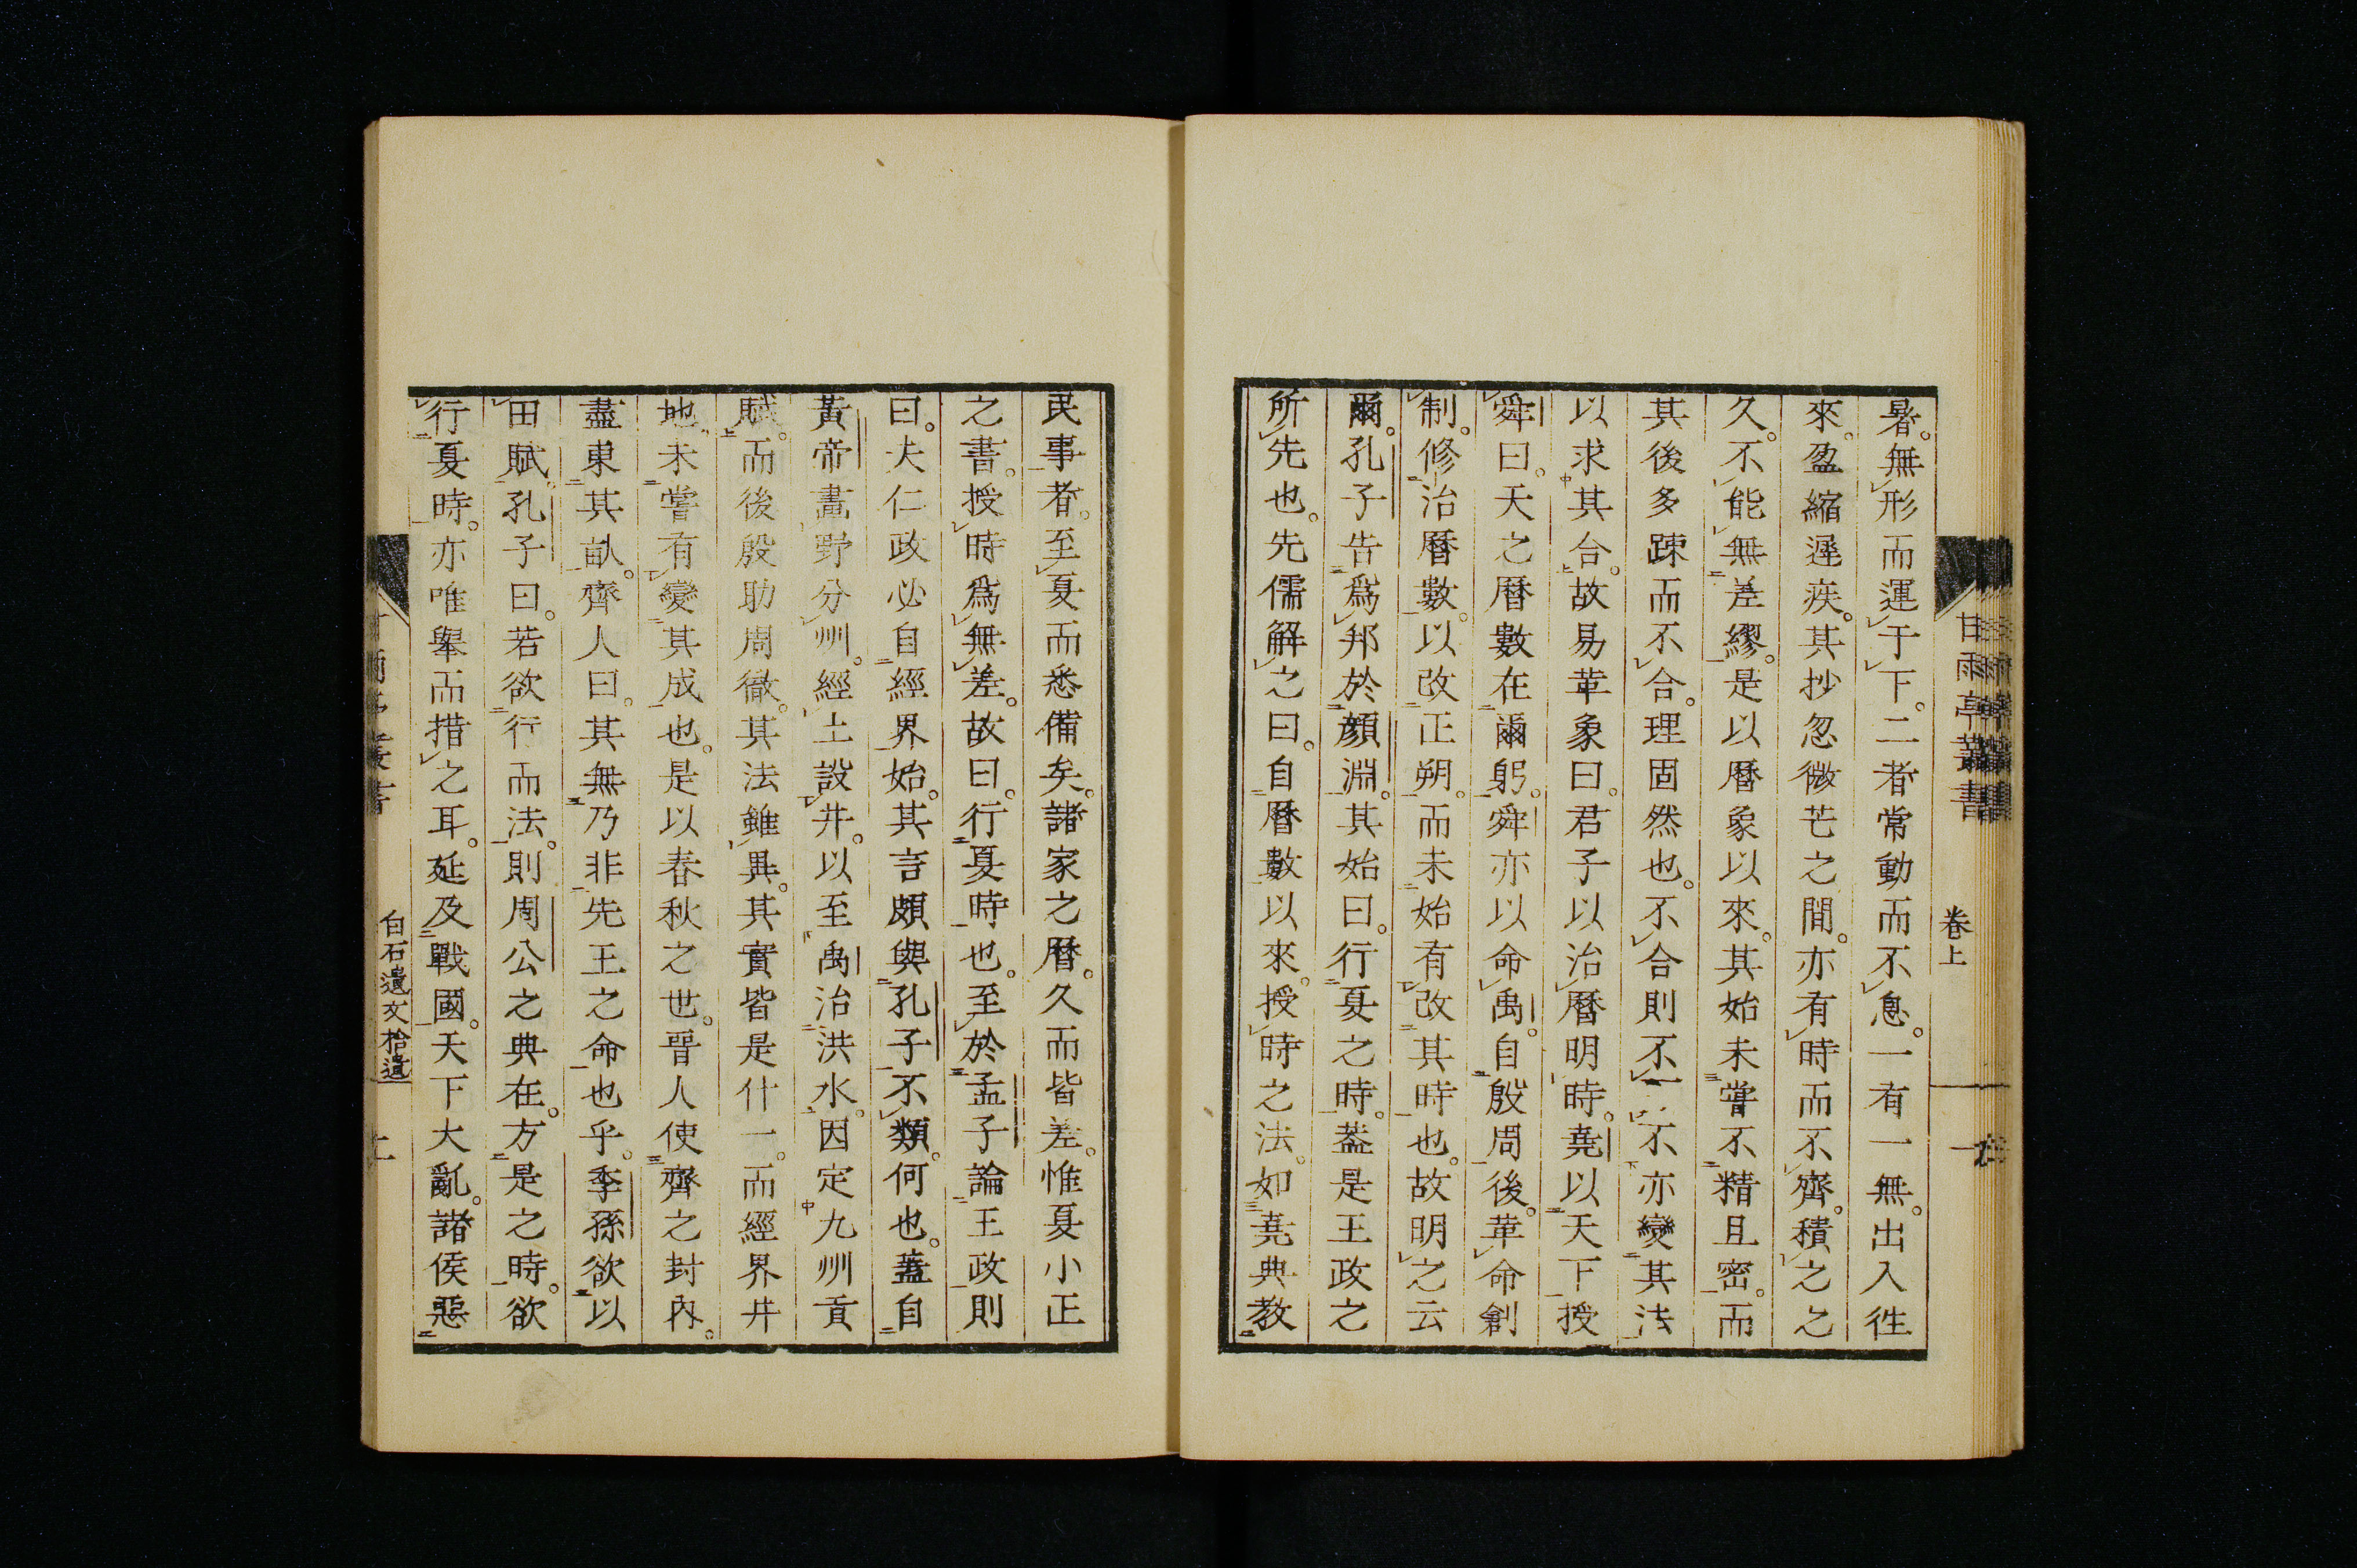 甘雨亭叢書
卷上
暑。無形而運于下。二者常動而不息。一有一無。出入徃
來。盈縮遲疾。其抄忽微芒之間。亦有時而不齊。積之之
久。不能無差繆。是以曆象以來。其始未嘗不精且密。而
其後多踈而不合。理固然也。不合則不可不亦變其法
以求其合。故易革象曰。君子以治曆明時。堯以天下授
舜曰。天之曆數在爾躬。舜亦以命禹。自殷周後。革命創
制。修治曆數。以改正朔。而未始有改其時也。故明之云
爾。孔子告爲邦於顏淵。其始曰。行夏之時。葢是王政之
所先也。先儒解之曰。自曆數以來。授時之法。如堯典敎
民事者。至夏而悉備矣。諸家之曆。久而皆差。惟夏小正
之書。授時爲無差。故曰。行夏時也。至於孟子論王政則
曰。夫仁政必自經界始。其言頗與孔子不類。何也。蓋自
黃帝畫野分州。經土設井。以至禹治洪水。因定九州貢
賦。而後殷助周徹。其法雖異。其實皆是什一。而經界井
地。未嘗有變其成也。是以春秋之世。晉人使齊之封內。
盡東其畝。齊人曰。其無乃非先王之命也乎。季孫欲以
田賦。孔子曰。若欲行而法。則周公之典在。方是之時。欲
行夏時。亦唯舉而措之耳。延及戰國。天下大亂。諸侯惡
白石遺文拾遺